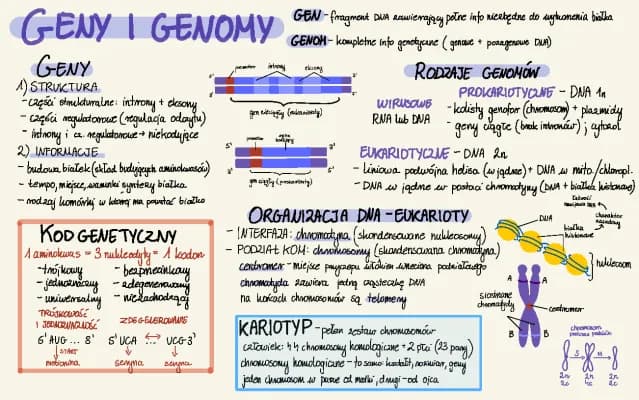 GENY I GENOMY
GEN - fragment DNA zawierający pełne info niezbędne do wytworzenia białka
GENOM - kompletne info genetyczne (genowe + pozagenowe DNA)
GENY
1) STRUKTURA
- części strukturalne: introny + eksony
- części regulatorowe (regulacja odczytu)
- introny i cz. regulatorowe → niekodujące
2) INFORMACJE
- budowa białek (skład budujących aminokwasów)
- tempo, miejsce, warunki syntezy białka
- rodzaj komórki w której ma powstać białko
promotor introny eksony
5' 3'
3' 5'
gen nieciągły (eukarionty)
promotor
5' 3'
3' 5'
gen ciągły (prokarionty)
RODZAJE GENOMÓW
WIRUSOWE
RNA lub DNA
PROKARIOTYCZNE - DNA 1n
- kolisty genofor (chromosom) + plazmidy
- geny ciągłe (brak intronów) ; cytozol
EUKARIOTYCZNE - DNA 2n
- liniowa podwójna helisa (w jądrze) + DNA w mito./chloropl.
- DNA w jądrze w postaci chromatyny (DNA + białka histonowe)
KOD GENETYCZNY
1 aminokwas = 3 nukleotydy = 1 kodon
- trójkowy
- jednoznaczny
- uniwersalny
- bezprzecinkowy
- zdegenerowany
- niezachodzący
TRÓJKOWOŚĆ
I JEDNOZNACZNOŚĆ
5' AUG ... 3'
START
metionina
ZDEGENEROWANIE
5' UCA ↔ UCG 3'
seryna seryna
ORGANIZACJA DNA - EUKARIOTY
- INTERFAZA: chromatyna (skondensowane nukleosomy)
- PODZIAŁ KOM: chromosomy (skondensowana chromatyna)
centromer - miejsce przyczepu włókien wrzeciona podziałowego
chromatyda zawiera jedną cząsteczkę DNA
na końcach chromosomów są telomery
KARIOTYP - pełen zestaw chromosomów
człowiek: 44 chromosomy homologiczne + 2 płci (23 pary)
chromosomy homologiczne - to samo: kształt, rozmiar, geny
jeden chromosom w parze od matki, drugi - od ojca
charakter zasadowy
DNA
białka
histonowe
nukleosom
siostrzane
chromatydy
A A
centromer
B B
chromosom
podczas podziału
S M
2n 2n 2n
2c 4c 2c